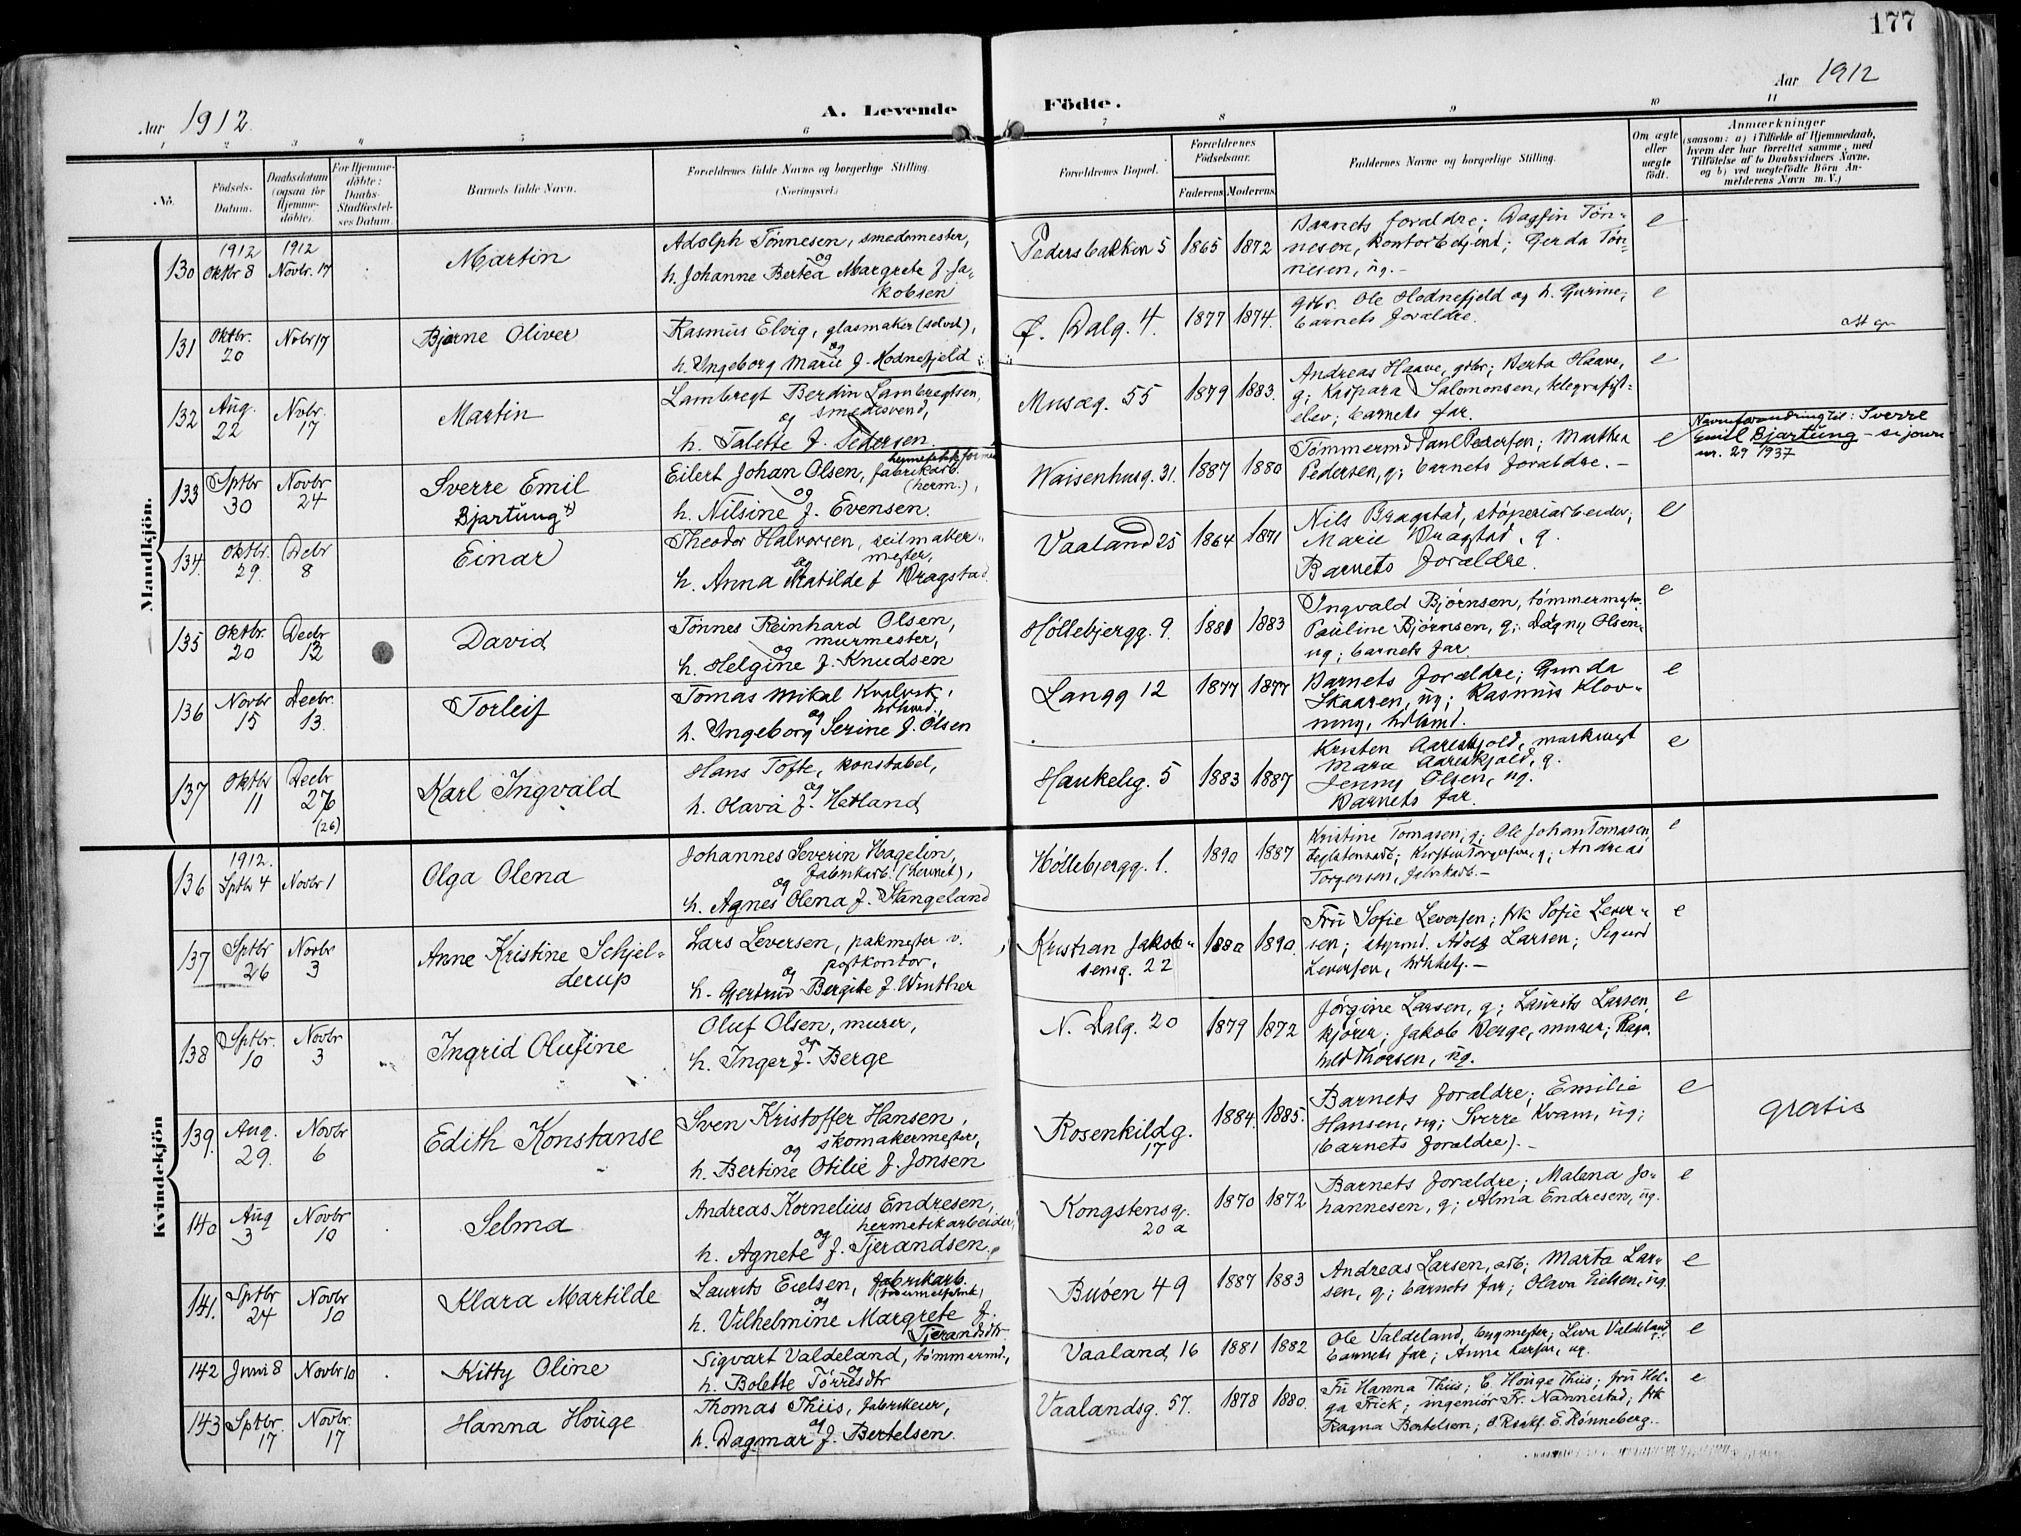 177
Aar 1912.
A. Levende
Födte.
Aar 1912
1 2 3 4 5 6 7 8 9 10 11
No.
Födsels-
Datum.
Daabsdatum
(ogsaa for
Hjemme-
döbte).
For Hjemme-
döbte:
Daabs-
Stadfæstel-
ses Datum.
Barnets fulde Navn.
Forældrenes fulde Navne og borgerlige Stilling.
(Næringsvei.)
Forældrenes Bopæl.
Forældrenes
Födselsaar.
Faderens. Moderens.
Faddernes Navne og borgerlige Stilling.
Om ægte
eller
uægte
født.
Anmærkninger
(saasom: a) i Tilfælde af Hjemmedaab,
hvem der har forrettet samme, med
Tilföielse af to Daabsvidners Navne,
og b) ved uægtefödte Börn An-
melderens Navn m. V.)
Mandkjön.
130 1912 Oktbr 8 1912 Novbr. 17 Martin
Adolph Tönnesen, smedemester,
og
h. Johanne Bertea Margrete f. Ja-
kobsen
Pedersbakken 5 1865 1872
Barnets foraldre; Dagfin Tøn-
nesen, kontorbetjent; Gerda Tøn-
nesen, ug. -
e
131 Oktbr. 20 Nvbr 17 Bjarne Oliver
Rasmus Elvig, glasmaker (selvst),
og
h. Ingeborg Marie f. Hodnefjeld
Ø. Dalg. 4. 1877 1874.
gdbr. Ole Hodnefjeld og h. Gurine;
barnets foraldre.
e
132 Aug. 22 Nvbr. 17 Martin
Lambregt Berdin Lambregtsen,
og smedesvend,
h. Talette f. Pedersen.
Musæg. 55 1879 1883.
Andreas Haave, gdbr; Berta Haave,
g; Kaspara Salomonsen, telegrafist-
elev; barnets far.
e
133 Sptbr 30 Novbr. 24 Sverre Emil
Bjartung x)
Eilert Johan Olsen, fabrikarb.
(herm.),
og
h. Nilsine f. Evensen.
Waisenhusg. 31. 1887 1880
Tømmermd Paul Pedersen; Marthea
Pedersen, g; barnets foraldre. -
e
Navneforandring til: Sverre
Emil Bjartung -
nr. 29 1937
134. Oktbr. 29. Debr 8 Einar
Theodor Halvorsen, seilmaker-
mester,
og
h. Anna Matilde f Bragstad
Vaaland 25 1864 1871
Nils Bragstad, støperiarbeider;
Marie Bragstad, g.
Barnets foraldre.
e
135 Oktbr. 20 Decbr 12 David
Tønnes Reinhard Olsen,
murmester,
og
h. Helgine f. Knudsen
Høllebjergg. 9. 1881 1883
Ingvald Bjørnsen, tømmermester
Pauline Bjørnsen, g; Dagny Olsen
ug; barnets far.
e
136 Novbr 15 Decbr. 13. Torleif
Tomas Mikal Kvalvik,
og
h. Ingeborg Serine f. Olsen
Langg 12 1877 1877
Barnets foraldre; Gunda
Skaaren, ug; Rasmus Klov-
ning,
e
137 Oktbr 11 Decbr 26 (26) Karl Ingvald
Hans Tofte, konstabel,
og
h. Olava f. Hetland
Haukelig. 5 1883 1887
Kristen Aareskjold, maskinist
Marie Aareskjold, g.
Jenny Olsen, ug.
Barnets far.
e
Kvindekjön
136 1912. Sptbr 4 Novbr 1 Olga Olena
Johannes Severin Hagelin,
fabrikarb. (hermet),
og
h. Agnes Olena f. Stangeland
Høllebjergg. 1. 1890 1887
Kristine Tomasen, g; Ole Johan Tomasen,
Kirsten Torgersen, g; Andreas
Torgersen, fabrikarb. -
e
137 Sptbr 26 Novbr 3 Anne Kristine Schjel-
derup
Lars Leversen, pakmester v.
postkontor,
og
h. Gjertrud Bergite f. Winther
Kristian Jakob-
sensg. 22 1880 1890.
Fru Sofie Leversen; frk Sofie Lever-
sen; styrmd. Adolf Larsen; Sigurd
Leversen, -
e
138 Sptbr. 10 Novbr 3 Ingrid Olufine
Oluf Olsen, murer,
og
h. Inger f. Berge
N. Dalg. 20 1879 1872
Jørgine Larsen, g; Laurits Larsen,
kjører; Jakob Berge, murer; Ragn-
hild Thorsen, ug.
e
139. Aug. 29. Novbr 6 Edith Konstanse
Sven Kristoffer Hansen,
skomakermester,
og
h. Bertine Otilie f. Jonsen
Rosenkildg.
17 1884. 1885.
Barnets foraldre; Emilie
Hansen, ug; Sverre Kvam, ug;
(barnets foraldre). -
e
gratis
140 Aug 3 Novbr 10 Selma
Andreas Kornelius Endresen,
hermetikarbeider,
og
h. Agnete f. Tjerandsen.
Kongstensg.
20 a 1870 1872
Barnets foraldre; Malena Jo-
hannesen, g; Alma Endresen, ug.
e
141. Sptbr 24 Novbr 10 Klara Martilde
Laurits Eielsen, fabrikarb.
og
h. Vilhelmine Margrete f.
Tjerandsdtr.
Buøen 49 1887 1883
Andreas Larsen, arb; Marta Lar-
sen, g; barnets far; Olava Eielsen, ug.
e
142 Juni 8 Novbr 10 Kitty Oline
Sigvart Valdeland, tømmermd.,
og
h. Bolette Tørresdtr
Vaaland 16 1881 1882
Ole Valdeland, bygmester; Lina Valdeland
barnets far; Anna Larsen, ug.
e
143 Sptbr. 17 Novbr. 17 Hanna Houge
Thomas Thiis, fabrikeier,
og
h. Dagmar f. Bertelsen.
Vaalandsg. 57. 1878 1880.
Fr. Hanna Thiis; C. Houge Thiis; fru Hel-
ga Frick; ingeniør Fr. Nannestad; frk
Ragna Bertelsen; E. Rønneberg.
e